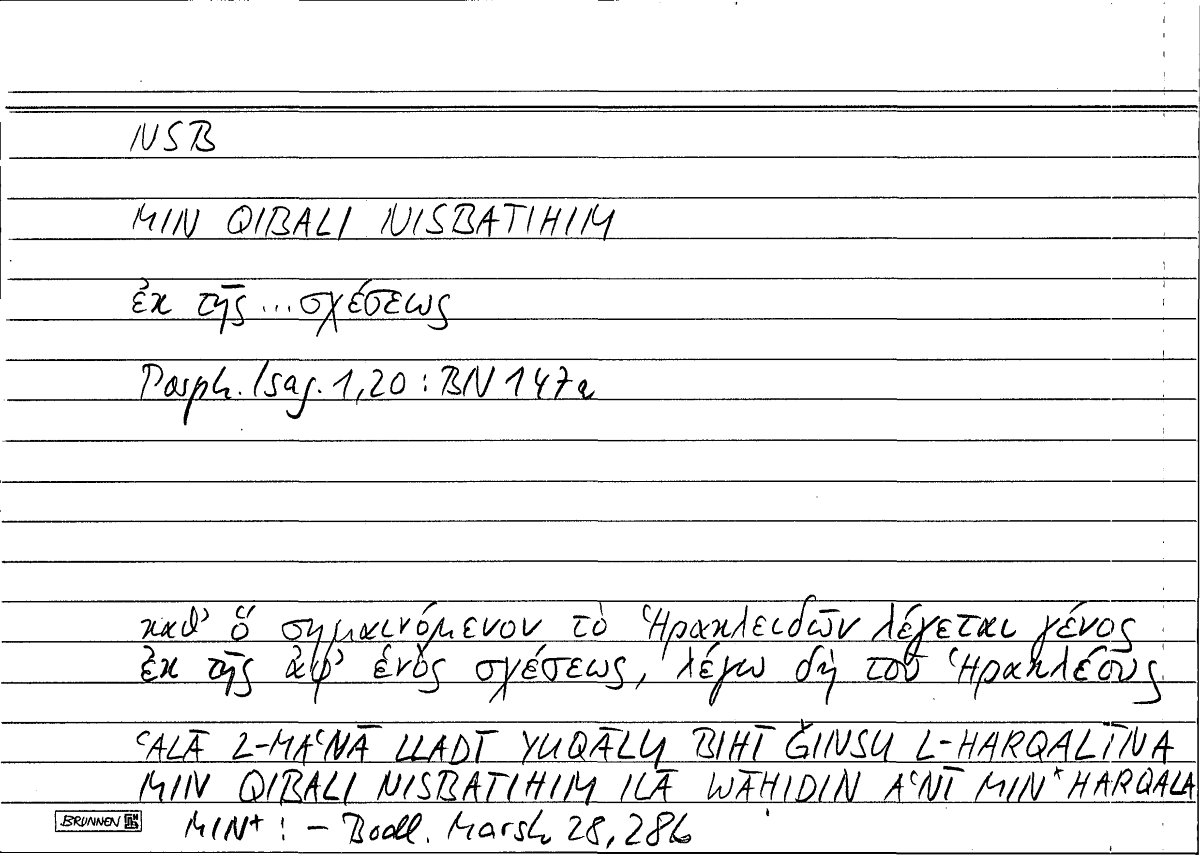 NSB
MIN QIBALI NISBATIHIM
ἐκ τῆς ... σχέσεως
Porph. Isag. 1,20 : BN 147a
καθ' ὃ σημαινόμενον τὸ Ἡρακλειδῶν λέγεται γένος
ἐκ τῆς ἀφ' ἑνὸς σχέσεως, λέγω δὴ τοῦ Ἡρακλέους
ʿALĀ L-MAʿNĀ LLADĪ YUQĀLU BIHĪ ĞINSU L-HARQALĪNA
MIN QIBALI NISBATIHIM ILĀ WĀHIDIN AʿNĪ MIN⁺ HARQALA
BRUNNEN MIN⁺ : – Bodl. Marsh 28, 28b